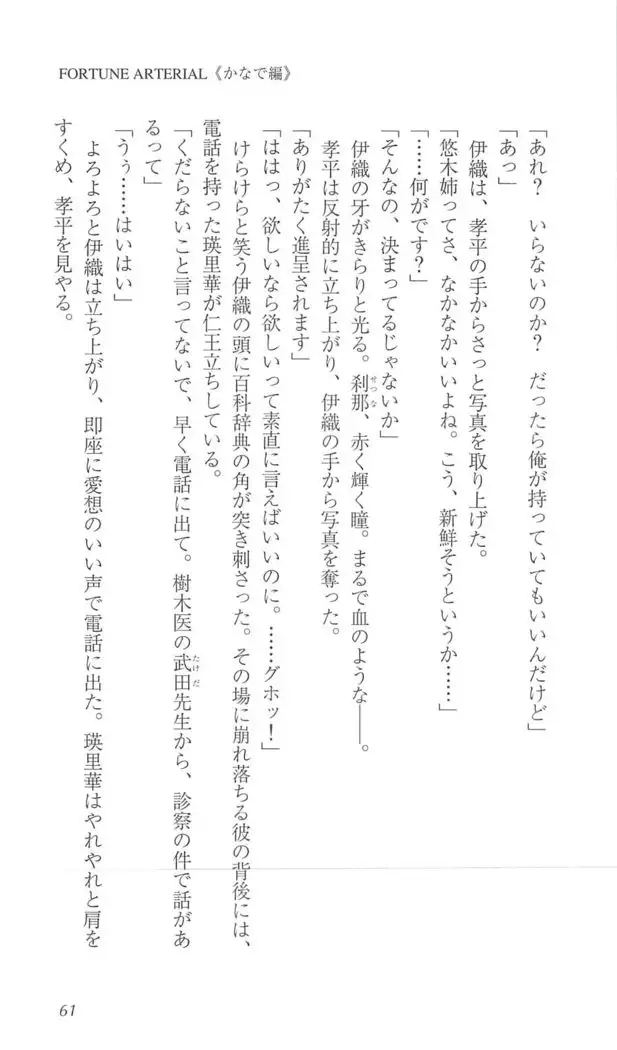 FORTUNE ARTERIAL《かなで編》
「あれ？　いらないのか？　だったら俺が持っていてもいいんだけど」
「あっ」
　伊織は、孝平の手からさっと写真を取り上げた。
「悠木姉ってさ、なかなかいいよね。こう、新鮮そうというか……」
「……何がです？」
「そんなの、決まってるじゃないか」
　伊織の牙がきらりと光る。刹那、赤く輝く瞳。まるで血のような――。
　孝平は反射的に立ち上がり、伊織の手から写真を奪った。
「ありがたく進呈されます」
「ははっ、欲しいなら欲しいって素直に言えばいいのに。……グホッ！」
　けらけらと笑う伊織の頭に百科辞典の角が突き刺さった。その場に崩れ落ちる彼の背後には、
電話を持った瑛里華が仁王立ちしている。
「くだらないこと言ってないで、早く電話に出て。樹木医の武田先生から、診察の件で話があ
るって」
「うぅ……はいはい」
　よろよろと伊織は立ち上がり、即座に愛想のいい声で電話に出た。瑛里華はやれやれと肩を
すくめ、孝平を見やる。
61